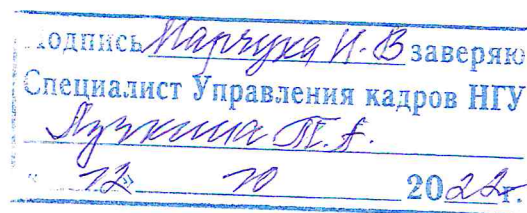 Подпись Марчука И.В заверяю
Специалист Управления кадров НГУ
Т.А.
«12» 10 2022г.